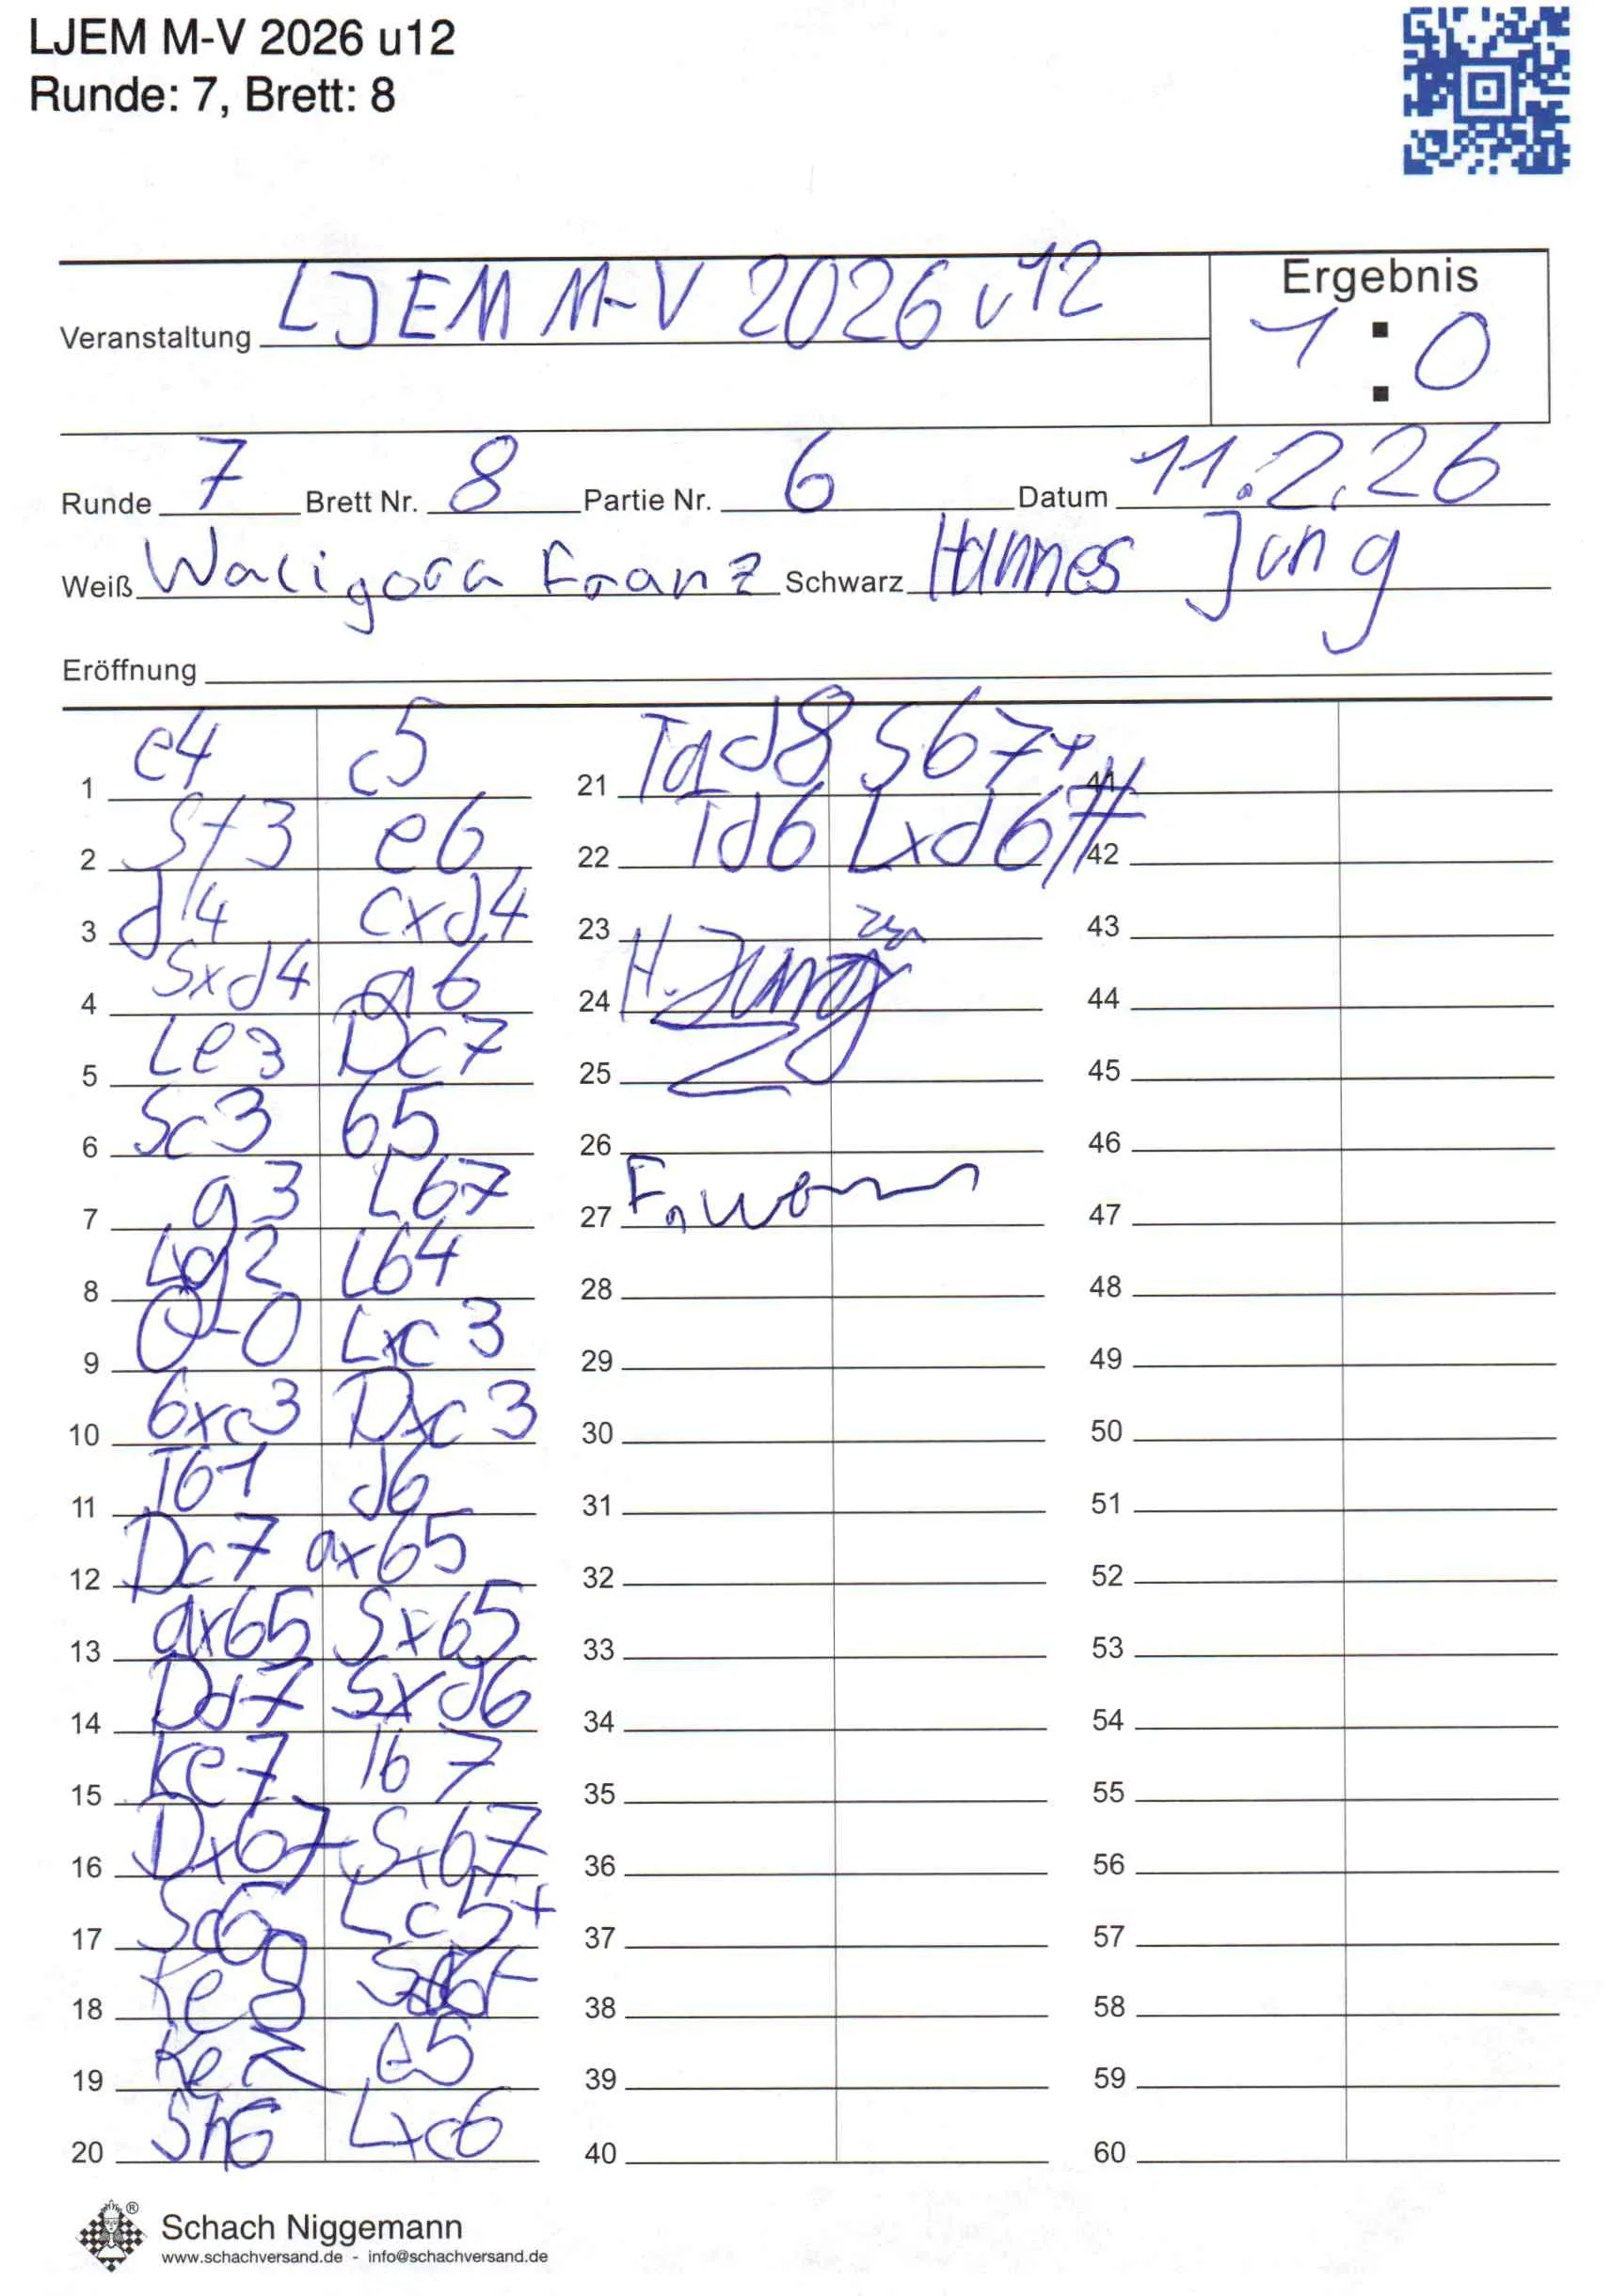 LJEM M-V 2026 u12
Runde: 7, Brett: 8
Veranstaltung LJEM M-V 2026 u12
Ergebnis
1 : 0
Runde 7 Brett Nr. 8 Partie Nr. 6 Datum 11.2.26
Weiß Waligora Franz Schwarz Hannes Jung
Eröffnung
1 e4 c5 21 Tad8 Sb7+ 41
2 Sf3 e6 22 Td6 Lxd6# 42
3 d4 cxd4 23 43
4 Sxd4 a6 24 H. Jung 44
5 Le3 Dc7 25 45
6 Sc3 b5 26 46
7 g3 Lb7 27 47
8 Lg2 Lb4 28 48
9 0-0 Lxc3 29 49
10 bxc3 Dxc3 30 50
11 Tb1 d6 31 51
12 Dc7 axb5 32 52
13 axb5 Sxb5 33 53
14 Dd7 Sxd6 34 54
15 Ke7 Tb7 35 55
16 Dxb7+ Sxb7 36 56
17 Sc6 Lc5+ 37 57
18 Ke8 38 58
19 Ke7 e5 39 59
20 Sh6 Lxc6 40 60
Schach Niggemann
www.schachversand.de - info@schachversand.de